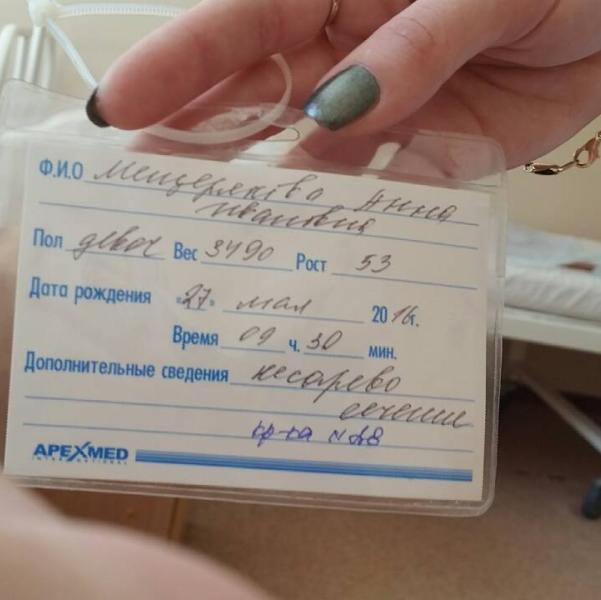 Ф.И.О Мещерякова Анна
Ивановна
Пол девоч Вес 3490 Рост 53
Дата рождения «27» мая 20 16г.
Время 09 ч. 30 мин.
Дополнительные сведения кесарево
сечение
кр-ка
APEXMED
INTERNATIONAL